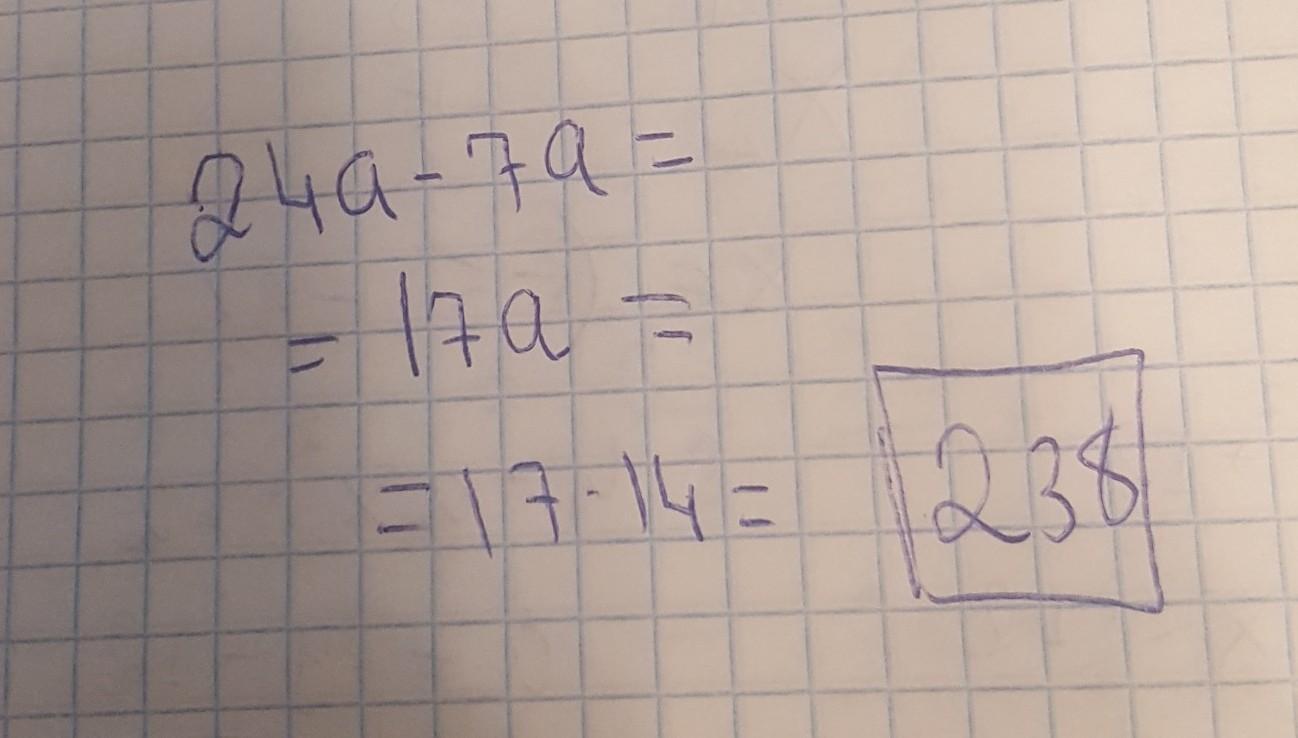 24a - 7a =
= 17a =
= 17 · 14 = 238